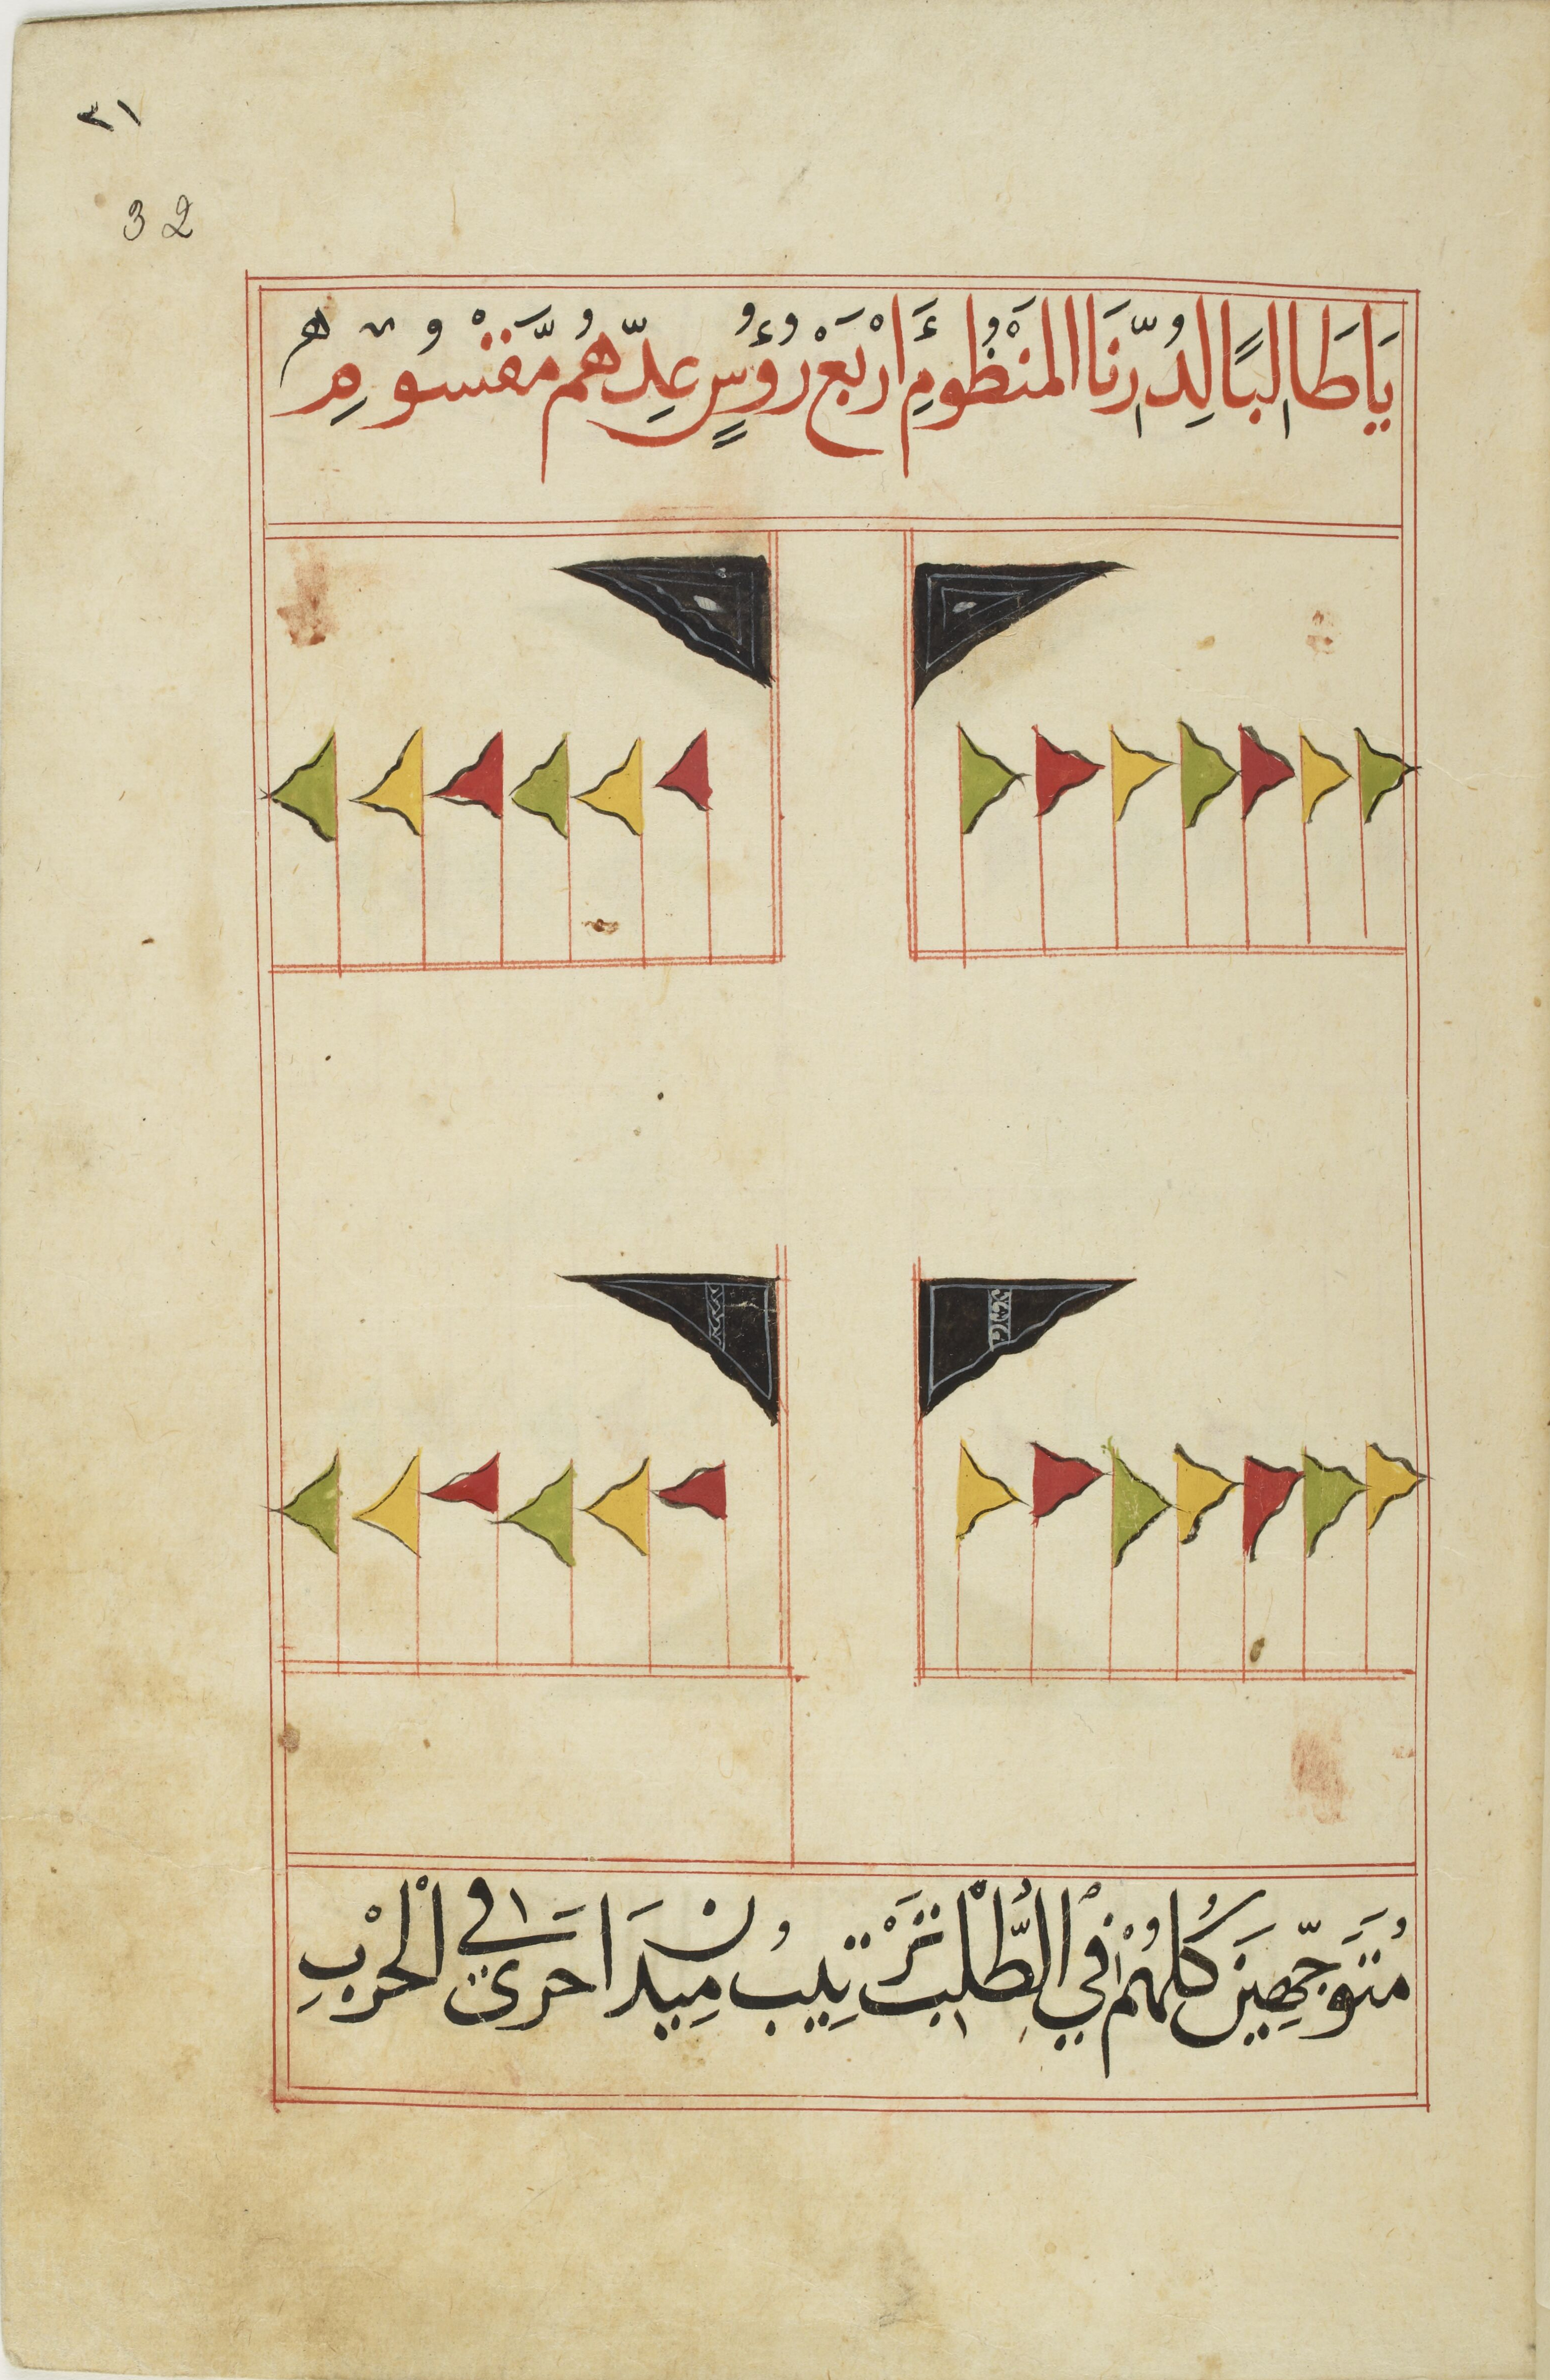 ٣١
32
يَا طَالِبًا لِدُرِّنَا المَنْظُومِ أَرْبَعْ رُؤُسٍ عِدُّهُمْ مَّقْسُومِ
مُتَوَجِّهِينَ كُلُّهُمْ فِي الطَّلَبْ تَرْتِيبُ مِيدَ احرى فى الْحَرْبِ